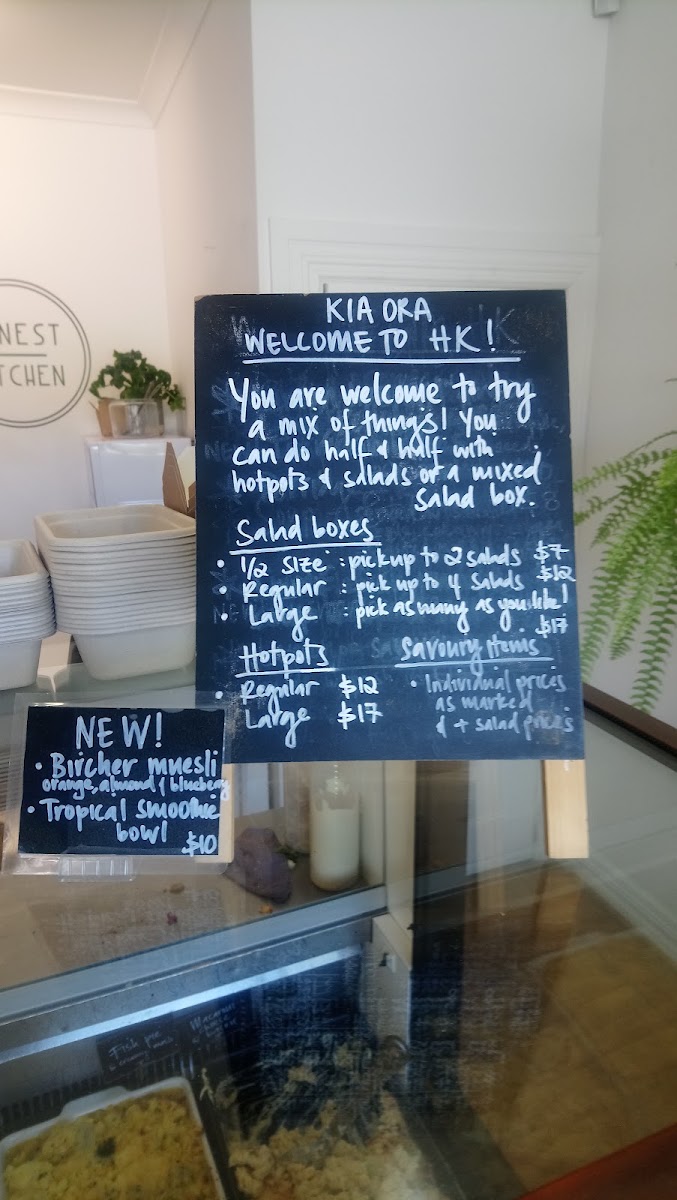 NEST
TCHEN
KIA ORA
WELCOME TO HK!
You are welcome to try
a mix of things! You
can do half & half with
hotpots & salads or a mixed
salad box.
Salad boxes
• 1/2 size : pick up to 2 salads $7
• Regular : pick up to 4 salads $12
• Large : pick as many as you like!
$17
Hotpots
• Regular $12
Large $17
Savoury items
• Individual prices
as marked
& + salad prices
NEW!
• Bircher muesli
orange, almond & blueberry
• Tropical smoothie
bowl
$10
Fish pie